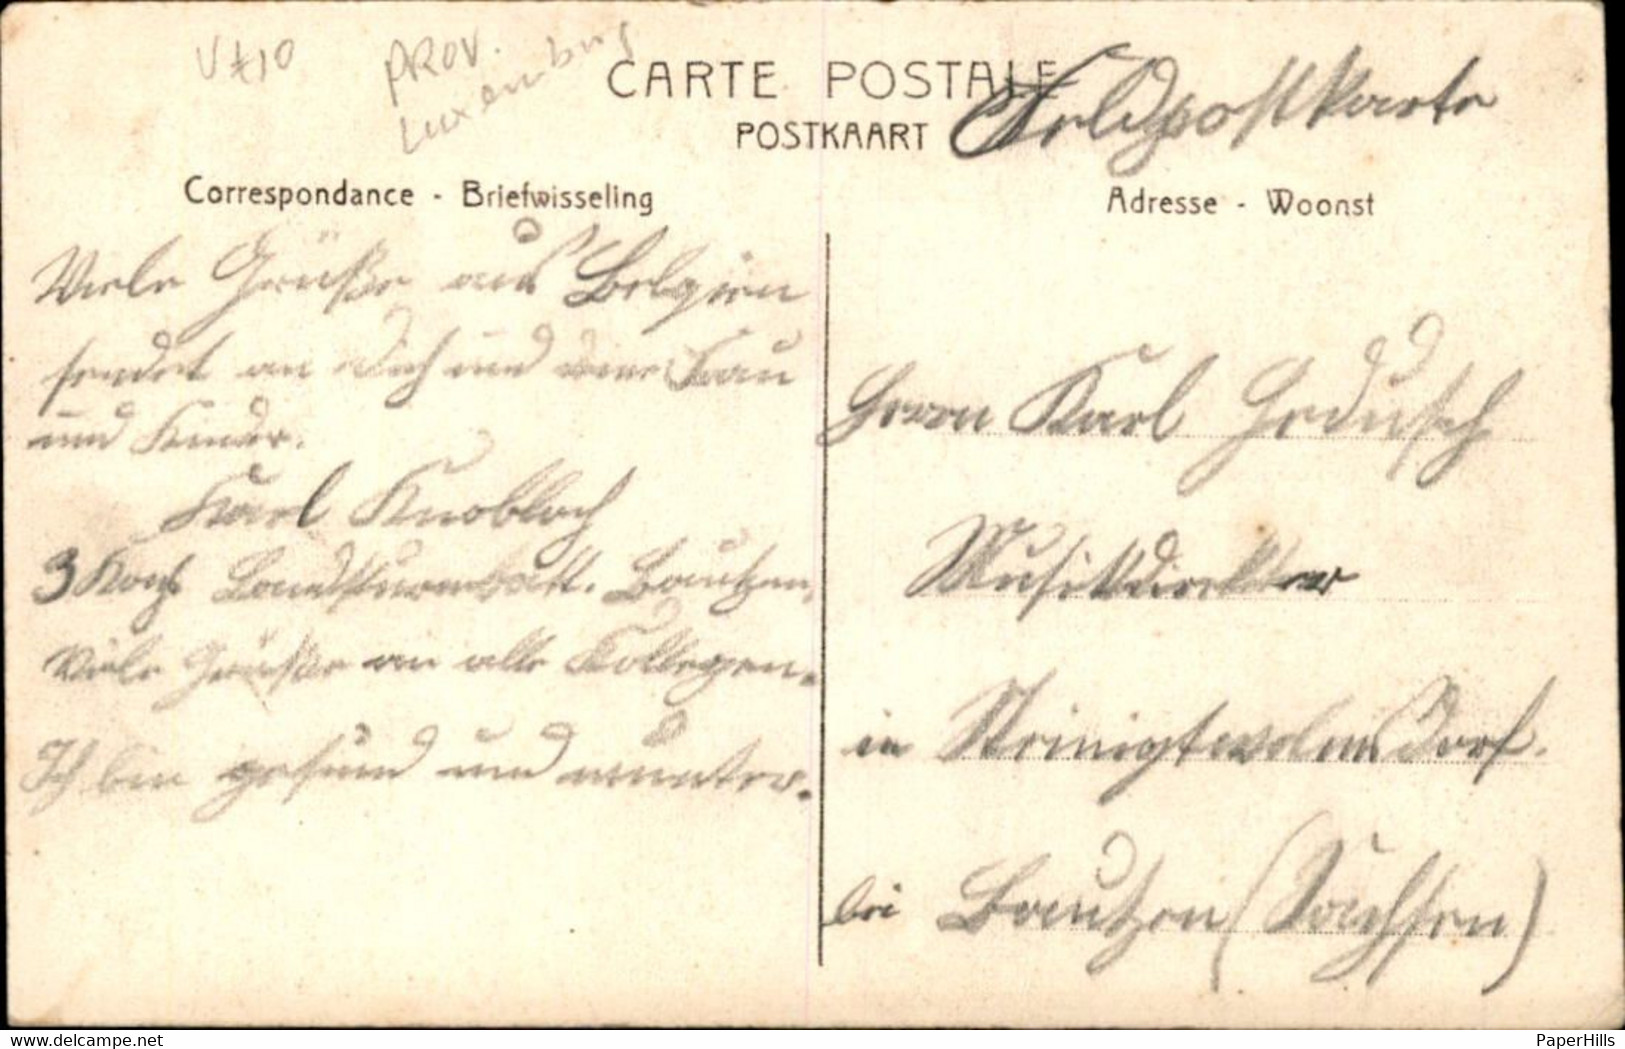 V t10
PROV.
Luxemburg
CARTE POSTALE
POSTKAART
Feldpostkarte
Correspondance - Briefwisseling
Adresse - Woonst
Viele Grüße aus Belgien
sendet an Dich und deine Frau
und Kinder.
Karl Knobloch
3 Komp. Landsturmbatt. Bautzen.
Viele Grüße an alle Kollegen.
Ich bin gesund und munter.
Herrn Karl
Musikdirektor
in Steinigtwolmsdorf.
bei Bautzen (Sachsen)
PaperHills
www.delcampe.net